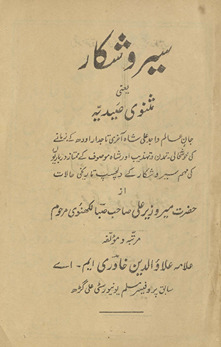 سیر و شکار
یعنی
مثنوی صیدیہ
جان عالم واجد علی شاہ آخری تاجدار اودھ کے زمانے
کی خوشحالی، تمدن و تہذیب اور شاہ موصوف کے ممتاز درباریوں
کی مہم سیر و شکار کے دلچسپ تاریخی حالات
از
حضرت میر وزیر علی صاحب صبا لکھنوی مرحوم
مرتبہ و مؤلفہ
علامہ علاؤالدین خاوری ایم۔ اے
سابق پروفیسر مسلم یونیورسٹی علی گڑھ